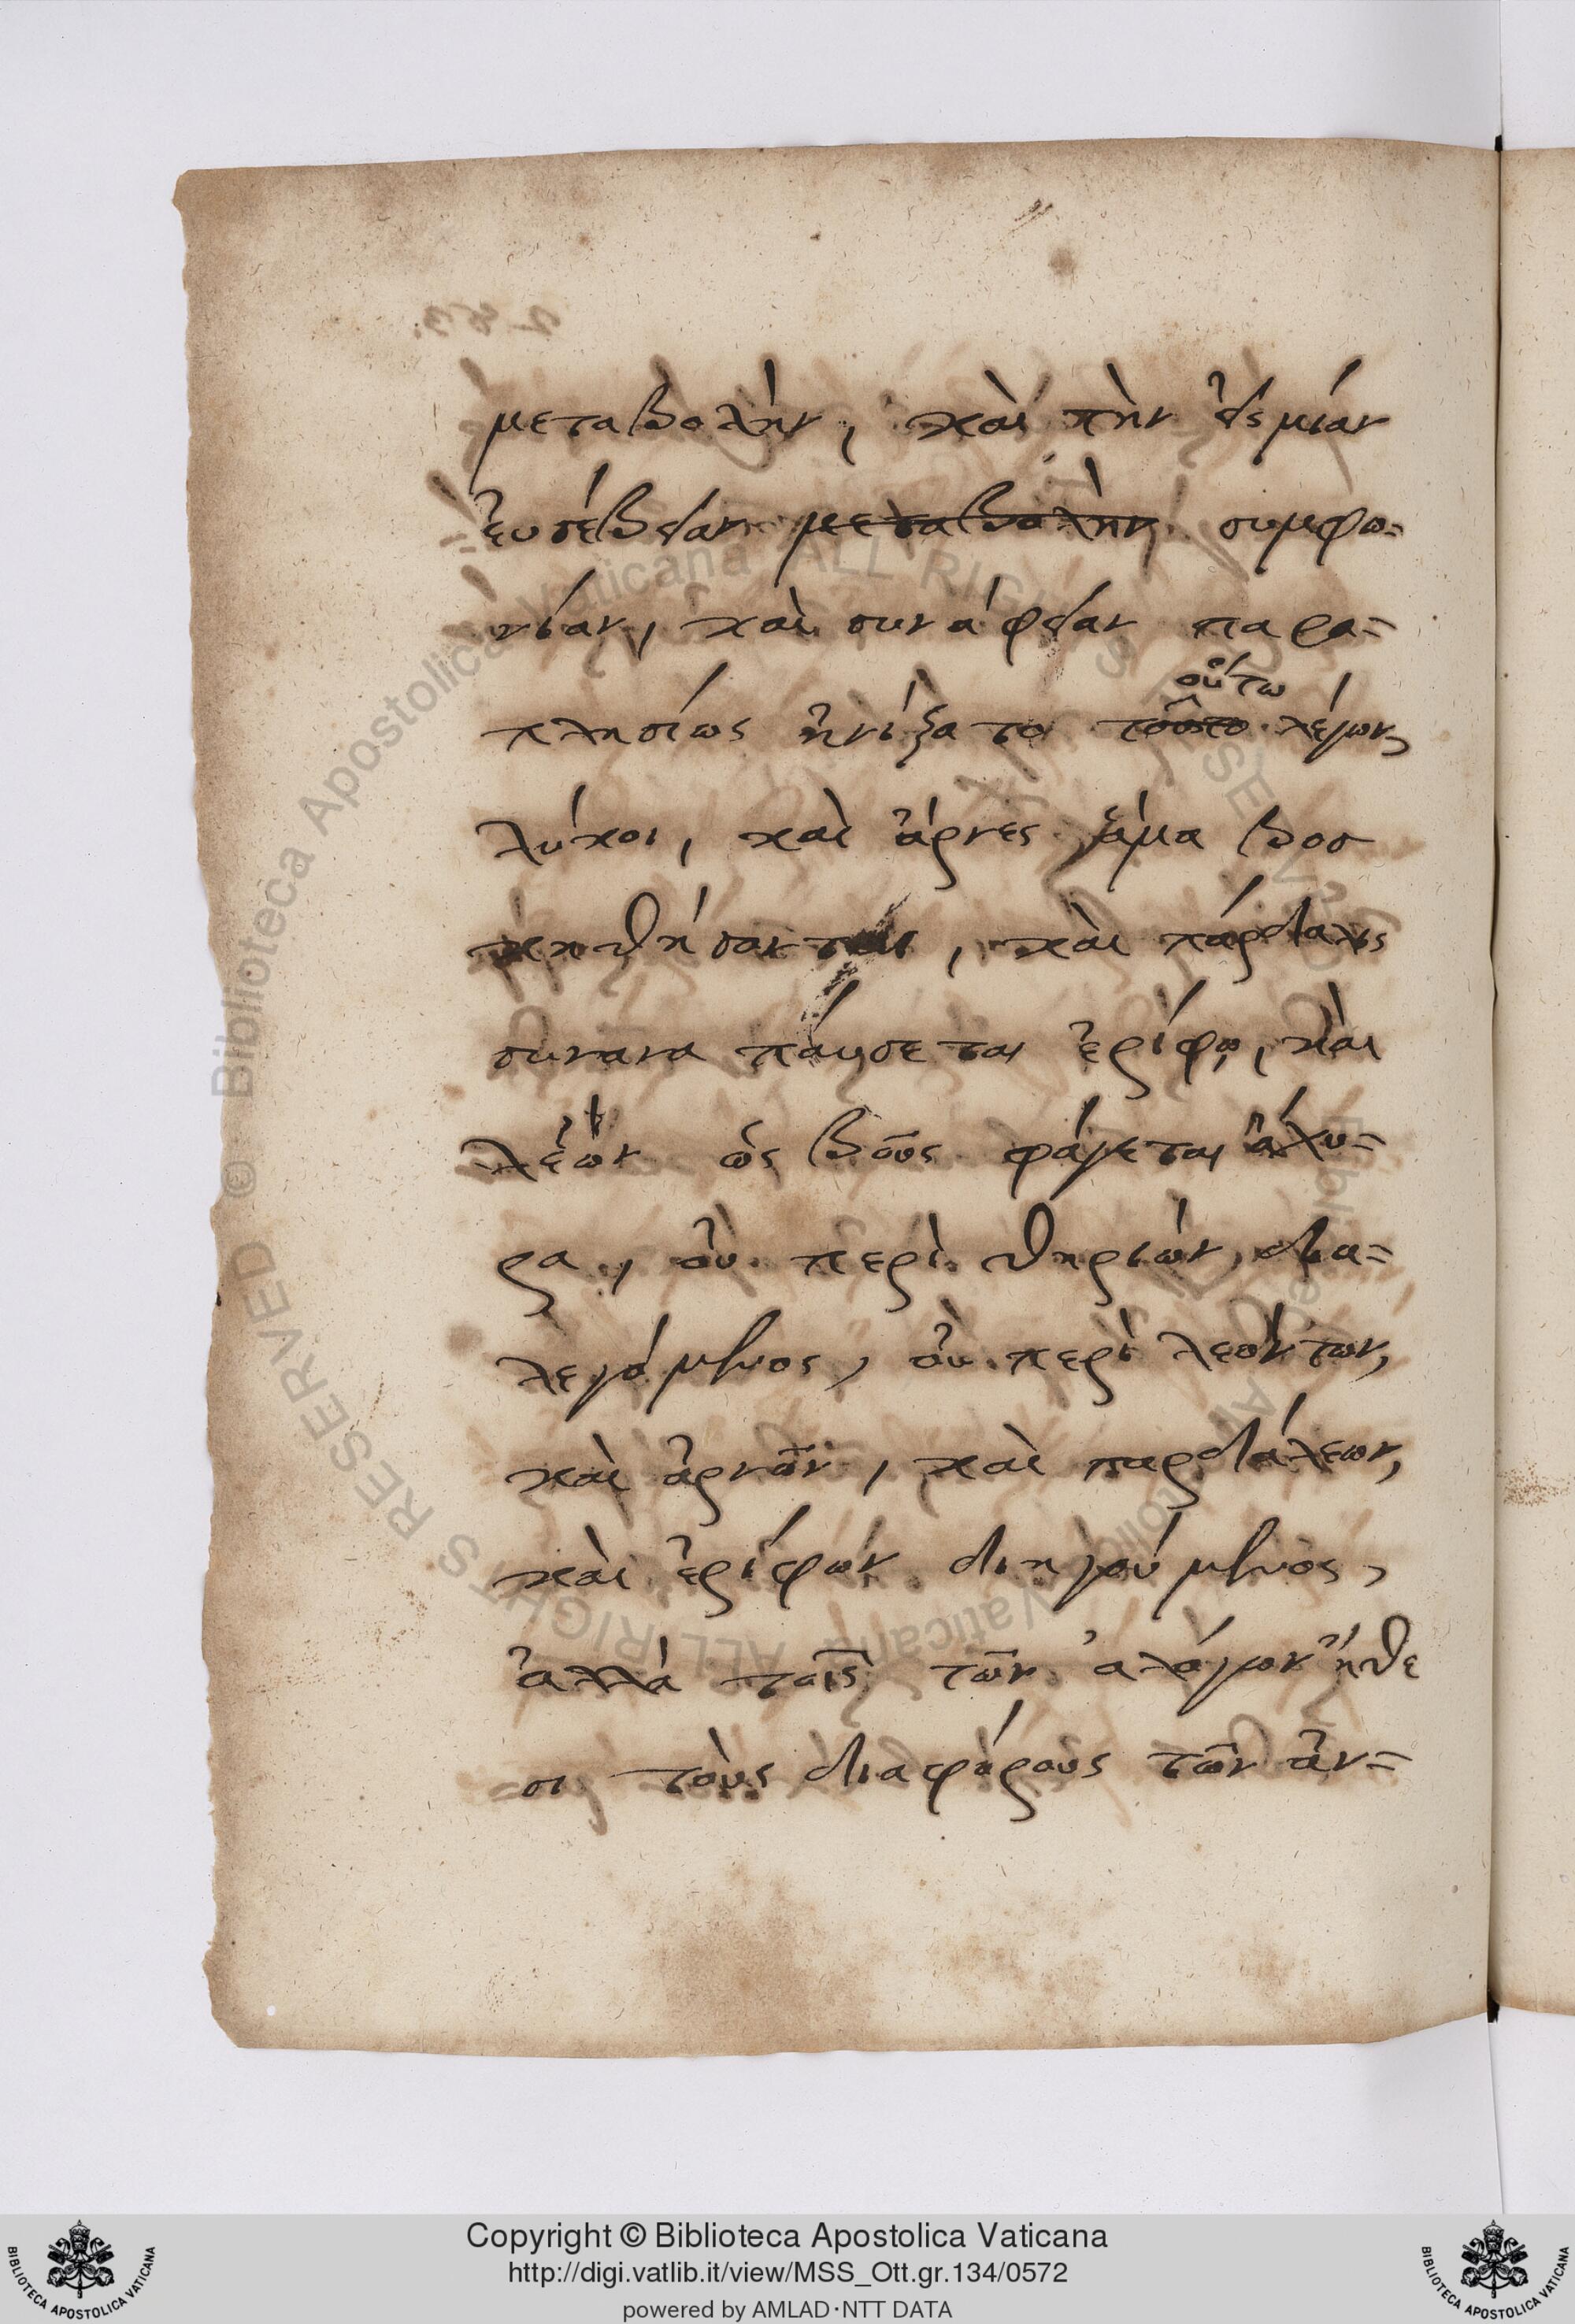 μεταβολὴν, καὶ τὴν εἰς μίαν
ἐυσέβειαν μεταβολὴν συμφω-
νίαν, καὶ συνάφειαν παρα-
πλησίως ἠνίξατο τοῦτο οὕτω λέγων,
λύκοι, καὶ ἄρνες ἅμα βοσ
κηθήσονται, καὶ πάρδαλις
συναναπάυσεται ἐρίφῳ, καὶ
λέων ὡς βοῦς φάγεται ἄχυ-
ρα, οὐ περὶ θηρίων δια-
λεγόμενος, οὐ περὶ λεόντων,
καὶ ἀρνῶν, καὶ παρδάλεων,
καὶ ἐρίφων διηγούμενος,
ἀλλὰ τοῖς τῶν ἀλόγων ἤθε
σι τοὺς διαφόρους τῶν ἀν-
Copyright © Biblioteca Apostolica Vaticana
http://digi.vatlib.it/view/MSS_Ott.gr.134/0572
powered by AMLAD·NTT DATA
BIBLIOTECA APOSTOLICA VATICANA
BIBLIOTECA APOSTOLICA VATICANA